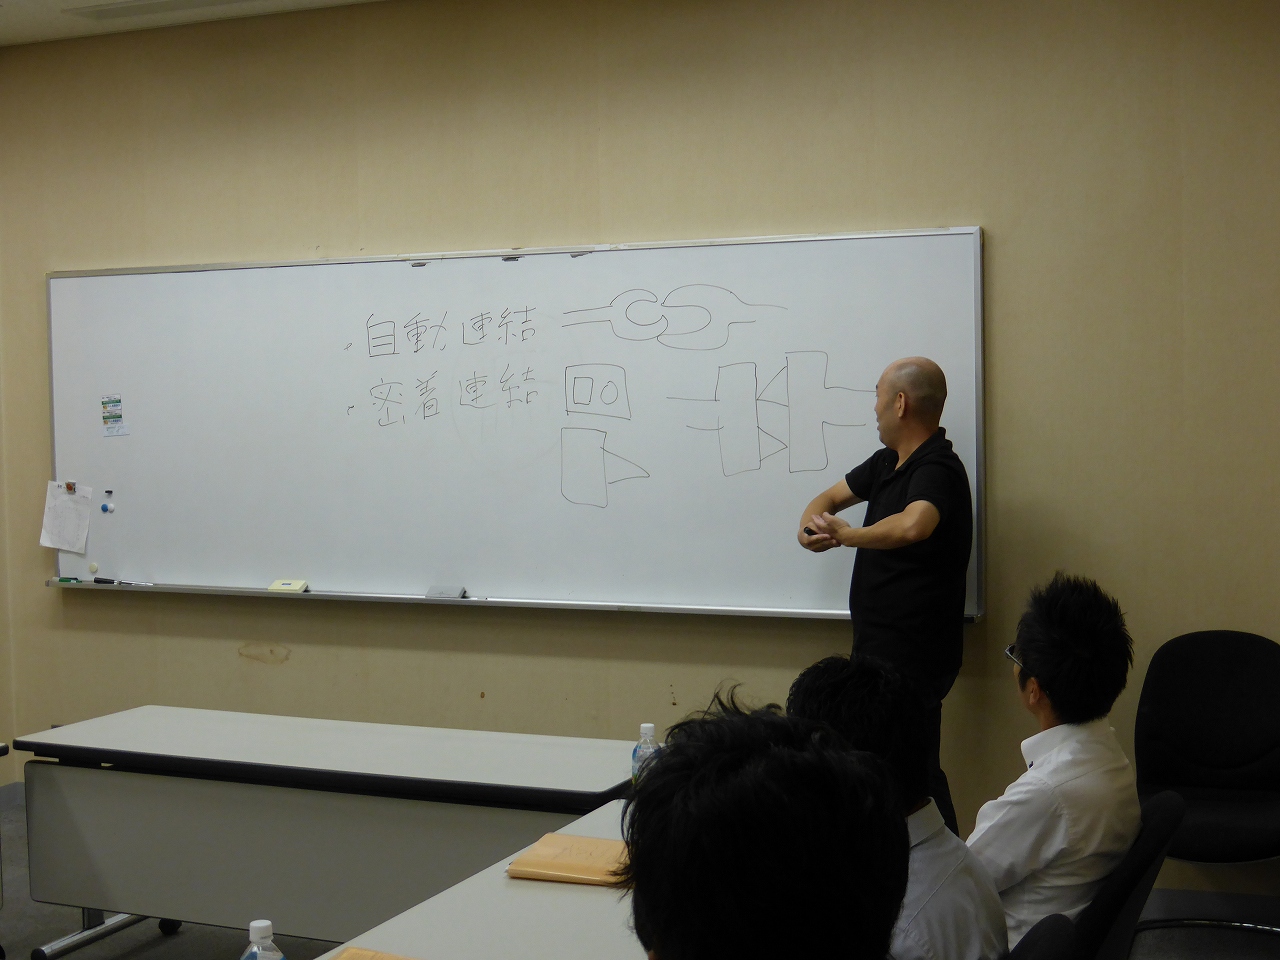 ・自動連結
・密着連結